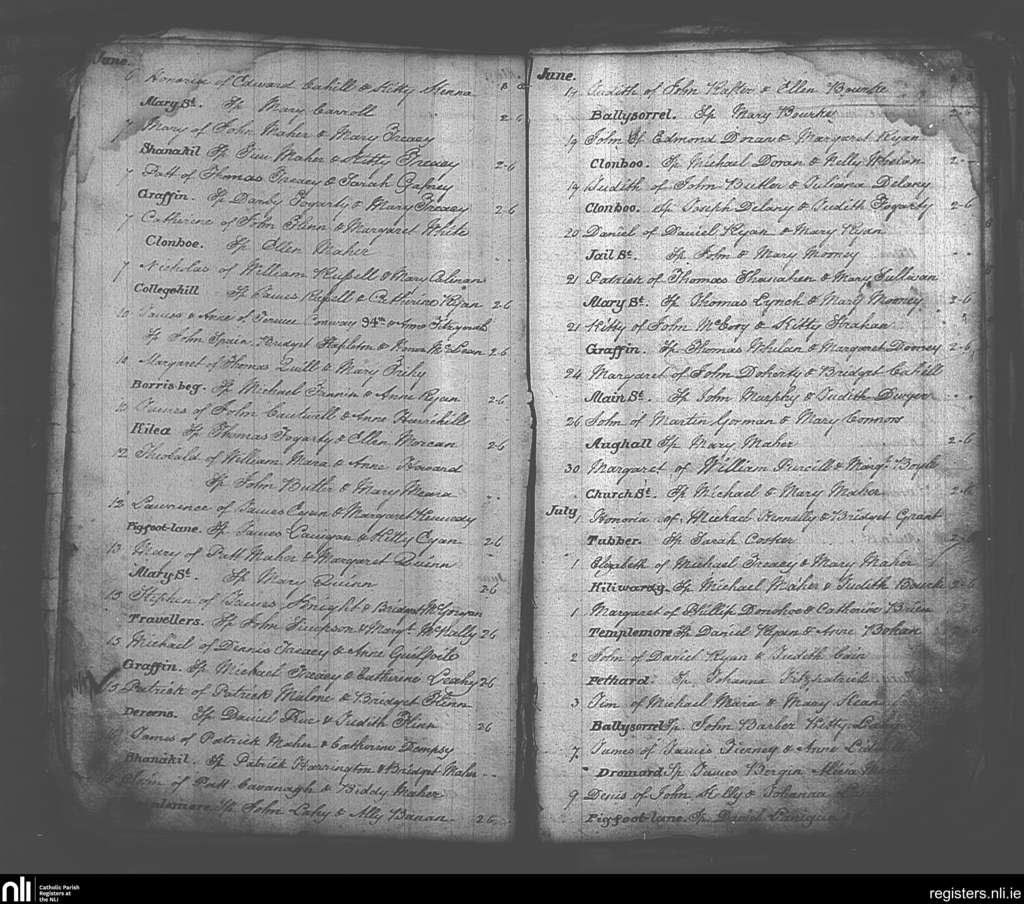 June.
6 Honoria of Edward Cahill & Kitty Henna
Mary St. Sp Mary Carroll 2-6
7 Mary of John Maher & Mary Treacy
Shanakil Sp Tim Maher & Kitty Treacy 2-6
7 Patt of Thomas Treacy & Sarah Gafney
Graffin. Sp Danby Fogarty & Mary Treacy 2-6
7 Catherine of John Flinn & Margaret White
Clonboe. Sp Ellen Maher
7 Nicholas of William Russell & Mary
Collegehill Sp James Russell & Catherine Ryan 2-6
10 James & Anne of Terence Conway 94th & Anne Fitzgerald
Sp John Spain, Bridget Stapleton & Honor McLean 2-6
Margaret of Thomas Quill & Mary
Borris-beg. Sp Michael Fannin & Anne Ryan 2-6
James of John Cantwell & Anne
Kilea Sp Thomas Fogarty & Ellen 2-6
12 Theobald of William Mara & Anne Howard
Sp John Butler & Mary Meara
12 Lawrence of James & Margaret Kennedy
Pigfoot-lane. Sp James & Kitty 2-6
13 Mary of Patt Maher & Margaret Quinn
Mary-St. Sp Mary Quinn 2-6
13 Stephen of James Knight & Bridget
Travellers. Sp John Simpson & Margt. McNally 2-6
15 Michael of Dennis Treacy & Anne
Graffin. Sp Michael Treacy & Catherine Leahy 2-6
Patrick of Patrick Malone & Bridget Flinn
Dereens. Sp Daniel & Judith 2-6
James of Patrick Maher & Catherine Dempsy
Shanakil. Sp Patrick Harrington & Bridget Maher
of Patt Cavanagh & Biddy Maher
Sp John Lahy & Ally 2-6
June.
17 Judith of John Rafter & Ellen Bourke
Ballysorrel. Sp Mary Bourke 2-6
19 John of Edmond Doran & Margaret Ryan
Clonboo. Sp Michael Doran & Nelly Whelan
19 Judith of John Butler & Juliana Delany
Clonboo. Sp Joseph Delany & Judith Fogarty 2-6
20 Daniel of Daniel Ryan & Mary Ryan
Jail St. Sp John & Mary Mooney
21 Patrick of Thomas Shanahan & Mary Sullivan
Mary St. Sp Thomas Lynch & Mary Mooney 2-6
21 Kitty of John McEvoy & Kitty Strahan
Graffin. Sp Thomas Whelan & Margaret Dooney 2-6
24 Margaret of John Doherty & Bridget Cahill
Main St. Sp John Murphy & Judith Dwyer
26 John of Martin Gorman & Mary Connors
Aughall Sp Mary Maher 2-6
30 Margaret of William Purcill & Margt. Boyle
Church St. Sp Michael & Mary Maher 2-6
July
1 Honoria of Michael Kennelly & Bridget Grant
Tubber. Sp Sarah Cosker 2-6
1 Elizabeth of Michael Treacy & Mary Maher
Kiliwardy. Sp Michael Maher & Judith Bourke 2-6
1 Margaret of Phillip Donohoe & Catharine Brien
Templemore Sp Daniel Ryan & Anne Bohan
2 John of Daniel Ryan & Judith Cain
Fethard. Sp Johanna Fitzpatrick
3 Jim of Michael Mara & Mary
Ballysorrel Sp John Barber Kitty
7 James of James Tierney & Anne
Dromard Sp James Bergin
9 Denis of John Kelly & Johanna
Pigfoot-lane. Sp Daniel
nli Catholic Parish
Registers at
the NLI
registers.nli.ie